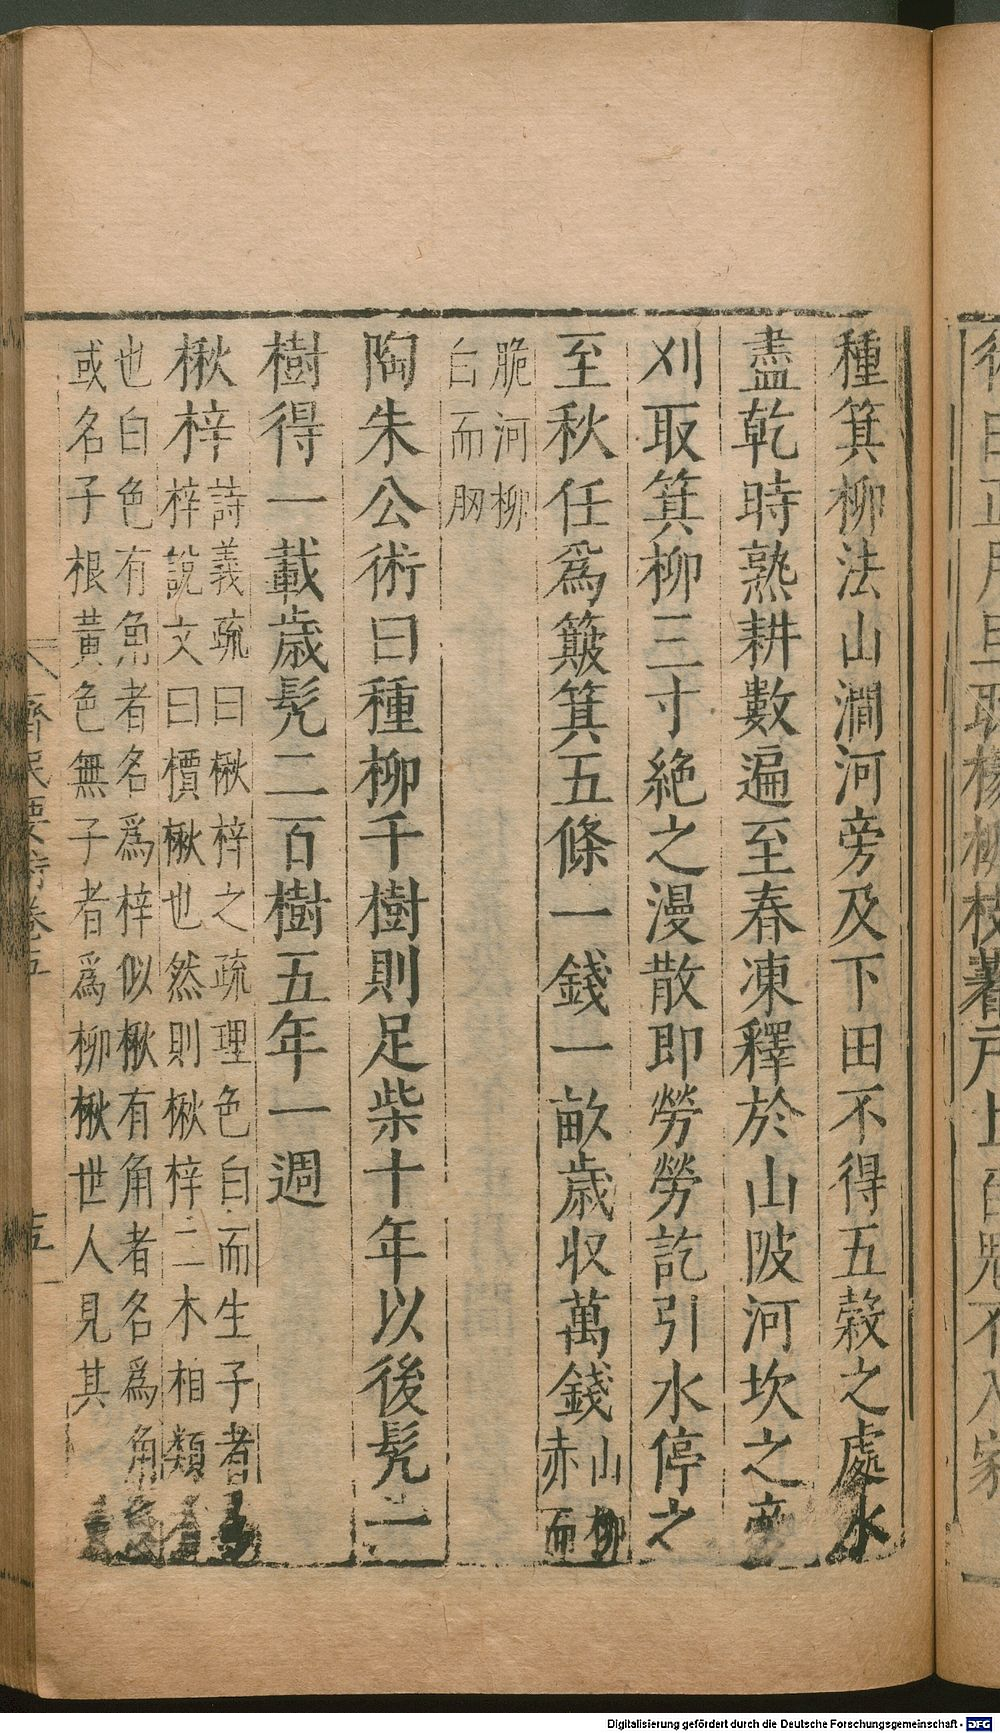 種箕柳法山澗河旁及下田不得五穀之處水
盡乾時熟耕數遍至春凍釋於山陂河坎之旁
刈取箕柳三寸絶之漫散即勞勞訖引水停之
至秋任爲簸箕五條一錢一畝歳収萬錢山柳
赤而
脆河柳
白而肕
陶朱公術曰種柳千樹則足柴十年以後髠一
樹得一載歳髠二百樹五年一週
楸梓詩義疏曰楸梓之疏理色白而生子者
梓說文曰檟楸也然則楸梓二木相類
也白色有角者名爲梓似楸有角者名爲角
或名子根黃色無子者爲柳楸世人見其
齊民要術卷五
Digitalisierung gefördert durch die Deutsche Forschungsgemeinschaft - DFG